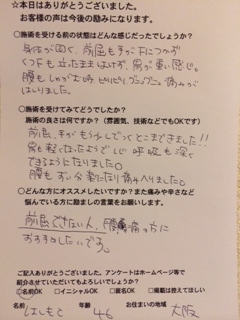 ☆本日はありがとうございました。
お客様の声は今後の励みになります。
○施術を受ける前の状態はどんな感じだったでしょうか?
身体が固く、前屈も手が下につかず
くつ下も立ったままはけず、肩が重い感じ。
腰もしゃがむ時ピリピリ
痛みが
はしりました。
○施術を受けてみてどうでしたか?
施術の良さは何ですか? (雰囲気、技術などでもOKです)
前屈、手がもう少しでつくとこまできました!!
肩も軽くなったようで 呼吸も深く
できるようになりました。
腰もずい分楽になり痛みへりました。
○どんな方にオススメしたいですか?また痛みや辛さなど
悩んでいる方に励ましの言葉をお願いします。
前屈できない人、腰痛の方に
おすすめしたいです。
ご記入ありがとうございました。アンケートはホームページ等で
紹介させていただいてもよろしいでしょうか?
○OK ○イニシャルOK ○匿名OK ○掲載は控えてほしい
お名前 年齢 お住まいの地域
はしもと 46 大阪